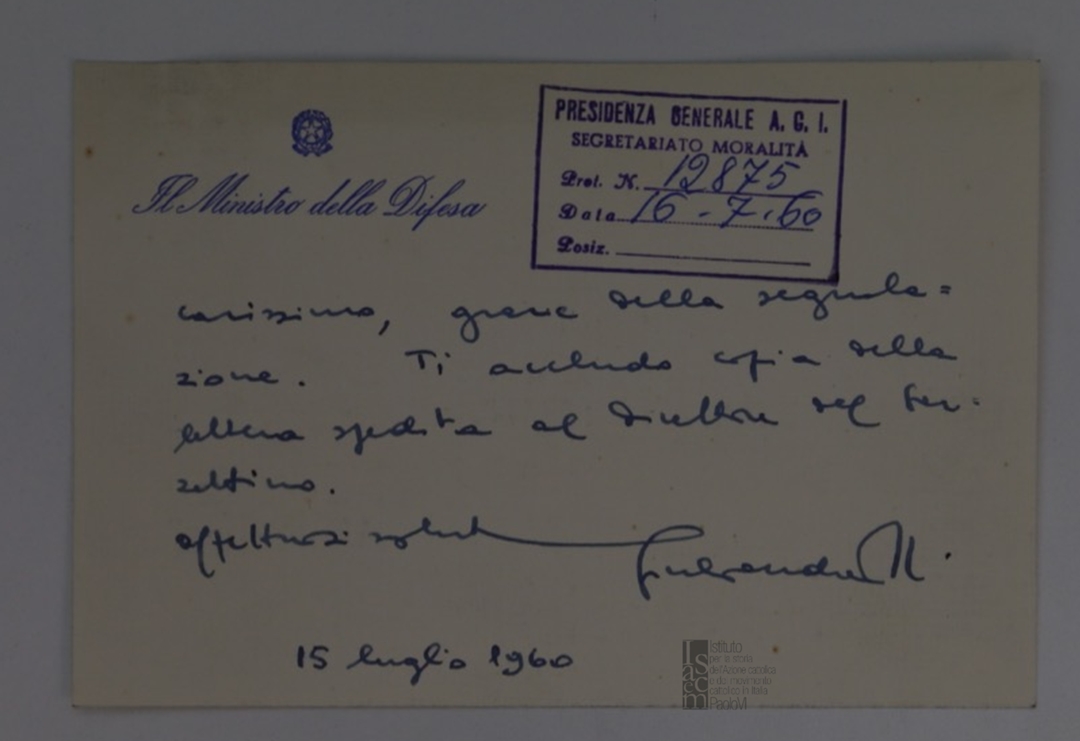 Il Ministro della Difesa
PRESIDENZA GENERALE A. G. I.
SEGRETARIATO MORALITÀ
Prot. N. 12875
Data 16-7-60
Posiz.
carissimo, grazie della segnala=
zione. Ti accludo copia della
lettera spedita al direttore del Ger-
zettino.
affettuosi saluti Giulio Andreotti
15 luglio 1960
Istituto
per la storia
dell'Azione cattolica
e del movimento
cattolico in Italia
PaoloVI
Isacem